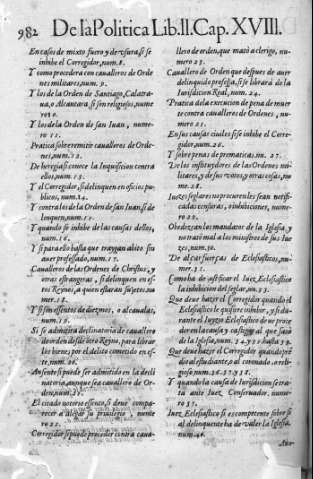 982 De la Politica Lib.II.Cap.XVIII.
En casos de mixto fuero y de vsura, si se
inhibe el Corregidor, num.8.
Y como procedera con caualleros de Orde
nes militares, num.9.
Y los de la Orden de Santiago, Calatra-
ua, o Alcantara, si son religiosos, nume
ro 10.
Y los de la Orden de san Iuan, nume-
ro 11.
Pratica sobre remitir caualleros de Orde-
nes, num.12.
De heregia si conoce la Inquisicion contra
ellos, num.13.
Y el Corregidor, si delinquen en oficios pu-
blicos, num.14.
Y contra los de la Orden de san Iuan, si de
linquen, num.15.
Y quando se inhibe de las causas dellos,
num.16.
Y si para ello basta que traygan abito sin
auer professado, num.17.
Caualleros de las Ordenes de Christus, y
otras estrangeras, si delinquen en es-
tos Reynos, a quien estaran sujetos, nu
mer.18.
Y si son essentos de diezmos, o alcaualas,
num.19.
Si se admitira declinatoria de cauallero
de orden desde otro Reyno, para librar
los bienes por el delito cometido en es-
te, num.20.
Ausente si puede ser admitido en la decli
natoria, aunque sea cauallero de Or-
den, num.21.
El criado notorio essento, si deue compa-
recer a alegar su priuilegio, nume
ro 22.
Corregidor si puede proceder contra caua-
llero de orden, que mató a clerigo, nu-
mero 23.
Cauallero de Orden que despues de auer
delinquido professa, si se librará de la
Iurisdicion Real, num.24.
Pratica de la execucion de pena de muer
te contra caualleros de Ordenes, nu-
mero 25.
En sus causas ciuiles si se inhibe el Corre-
gidor, num.26.
Y sobre penas de prematicas, nu. 27.
De los instituydores de las Ordenes mi-
litares, y de sus votos, y otras cosas, nu-
me. 28.
Iuezes seglares no procuren les sean notifi-
cadas censuras, o inhibiciones, nume-
ro 29.
Obedezcan los mandatos de la Iglesia, y
no traten mal a los ministros de sus Iue
zes, num.30.
De las fuerças de Eclesiasticos, nu-
mer.31.
Como ha de justificar el Iuez Eclesiastico
la inhibicion del seglar, nu.33.
Que deue hazer el Corregidor quando el
Eclesiastico le quisiere inhibir, y si du-
rante el juyzio Eclesiastico deue proce
der en la causa y castigar al que sacó
de la Iglesia, num.34.35. hasta 39.
Que deue hazer el Corregidor quando pre
dio al estudiante, o al coronado, o reli-
gioso, num.36.37.38.
Y quando la causa de Iurisdicion se tra-
ta ante Iuez Conseruador, nume-
ro 39.
Iuez Eclesiastico si es competente sobre si
al delinquente ha de valer la Iglesia,
num.40.